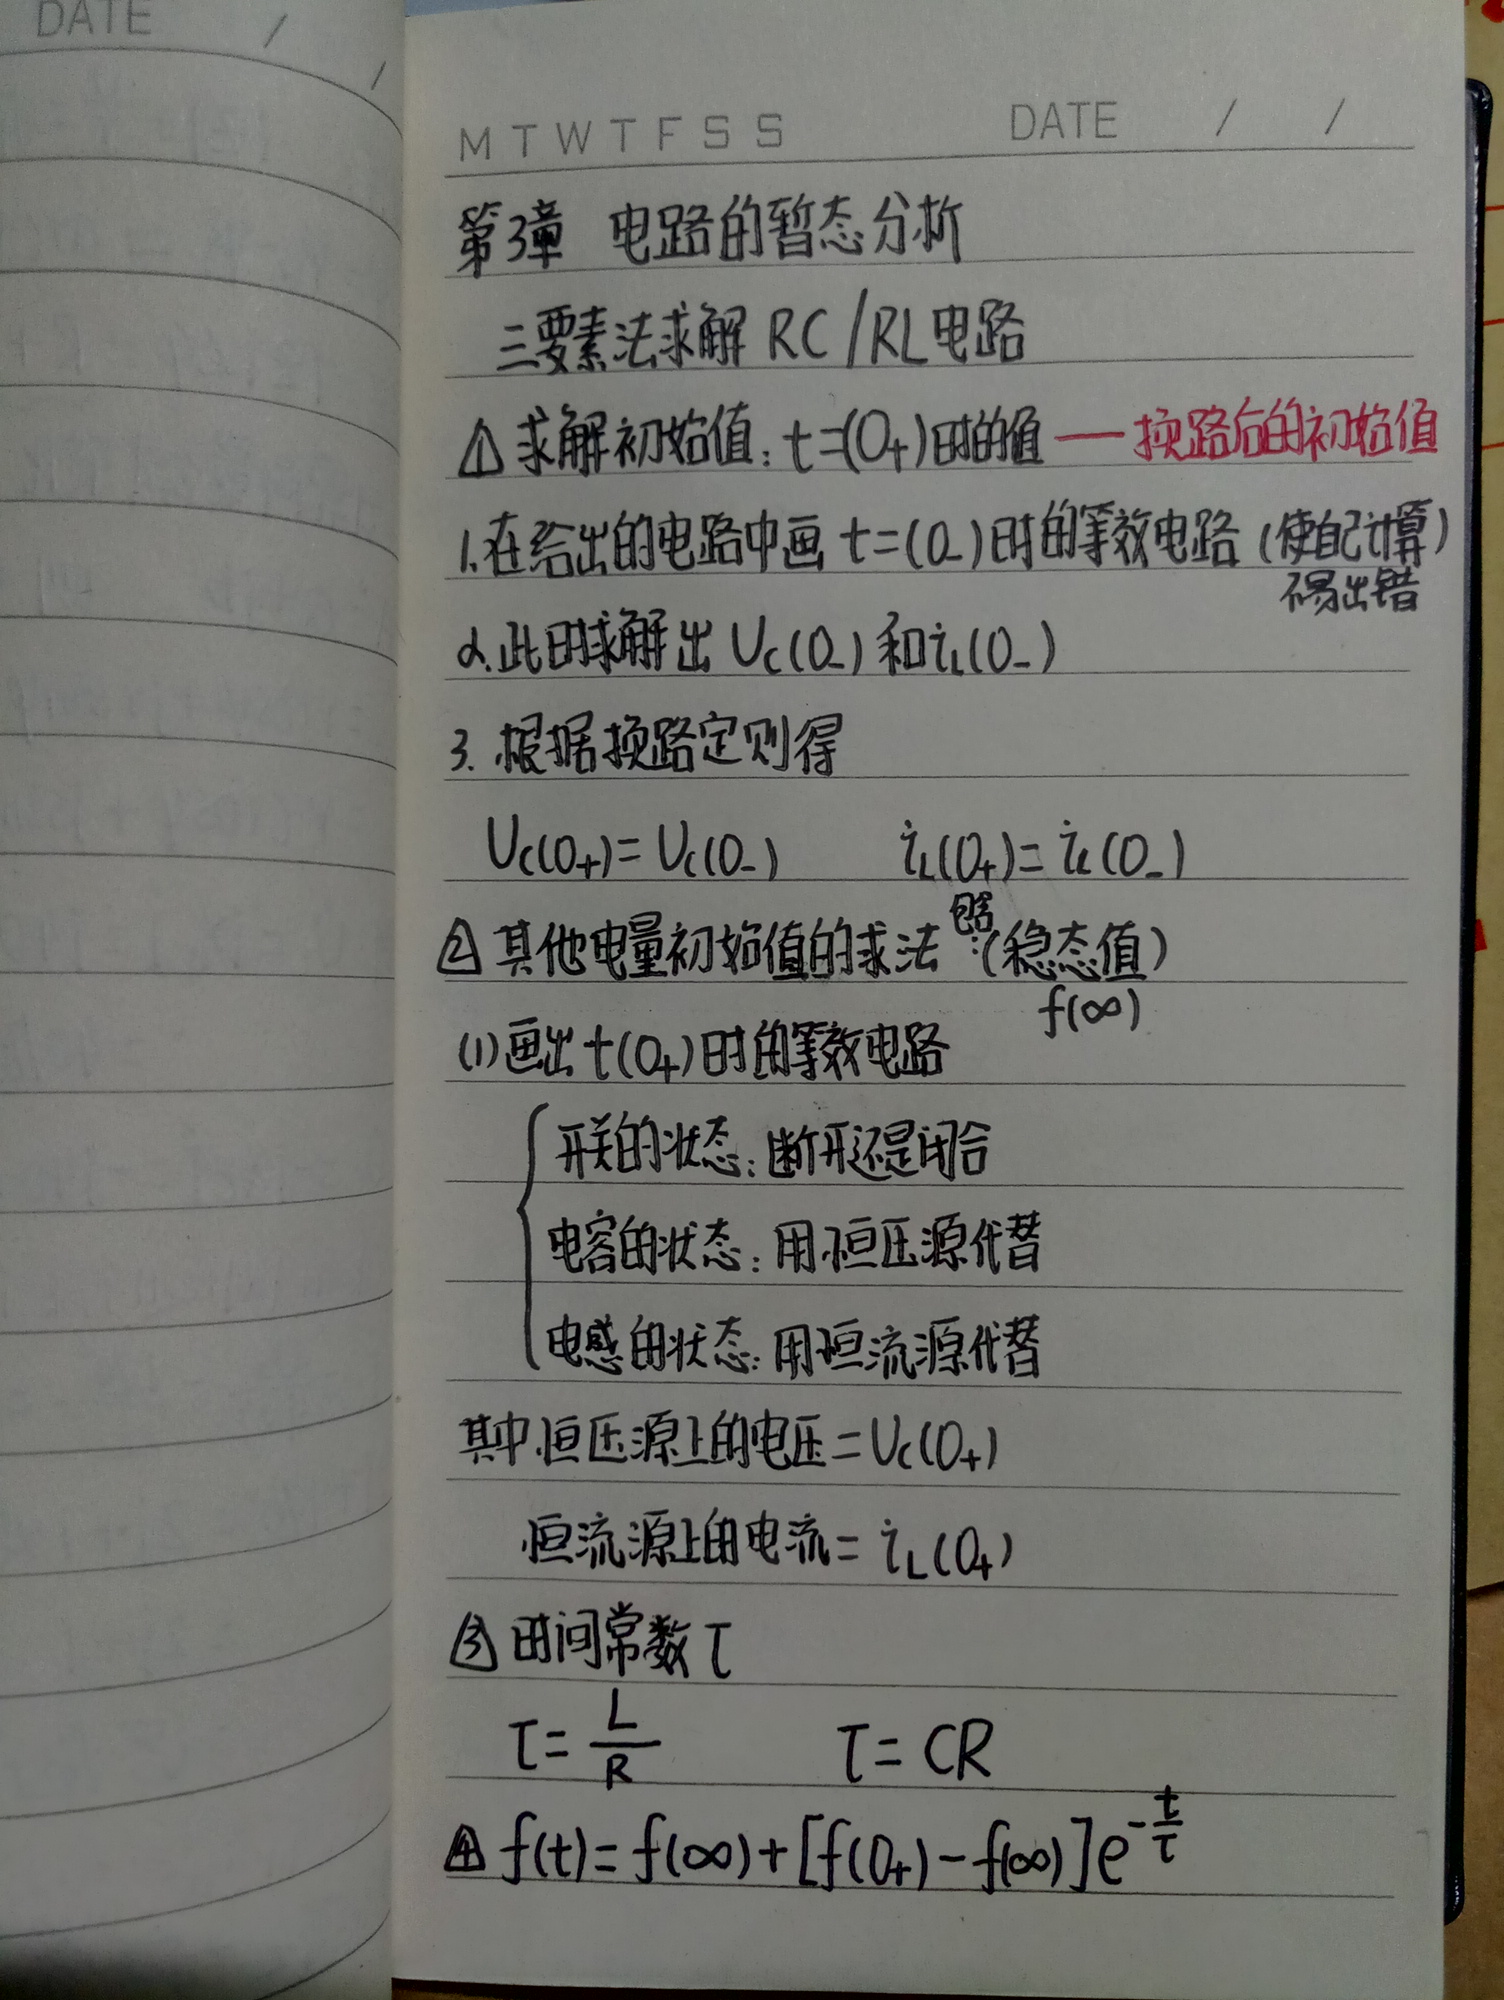 DATE /
/
M T W T F S S DATE / /
第3章 电路的暂态分析
三要素法求解 RC/RL电路
① 求解初始值：t=(0+)时的值 —— 换路后的初始值
1.在给出的电路中画 t=(0-)时的等效电路（使自己计算）
不易出错
2.此时求解出 Uc(0-) 和 iL(0-)
3.根据换路定则得
Uc(0+)=Uc(0-) iL(0+)=iL(0-)
② 其他电量初始值的求法 包含：（稳态值）
f(∞)
(1)画出 t(0+)时的等效电路
开关的状态：断开还是闭合
电容的状态：用恒压源代替
电感的状态：用恒流源代替
其中恒压源上的电压=Uc(0+)
恒流源上的电流=iL(0+)
③ 时间常数τ
τ=L/R τ=CR
④ f(t)=f(∞)+[f(0+)-f(∞)]e^(-t/τ)